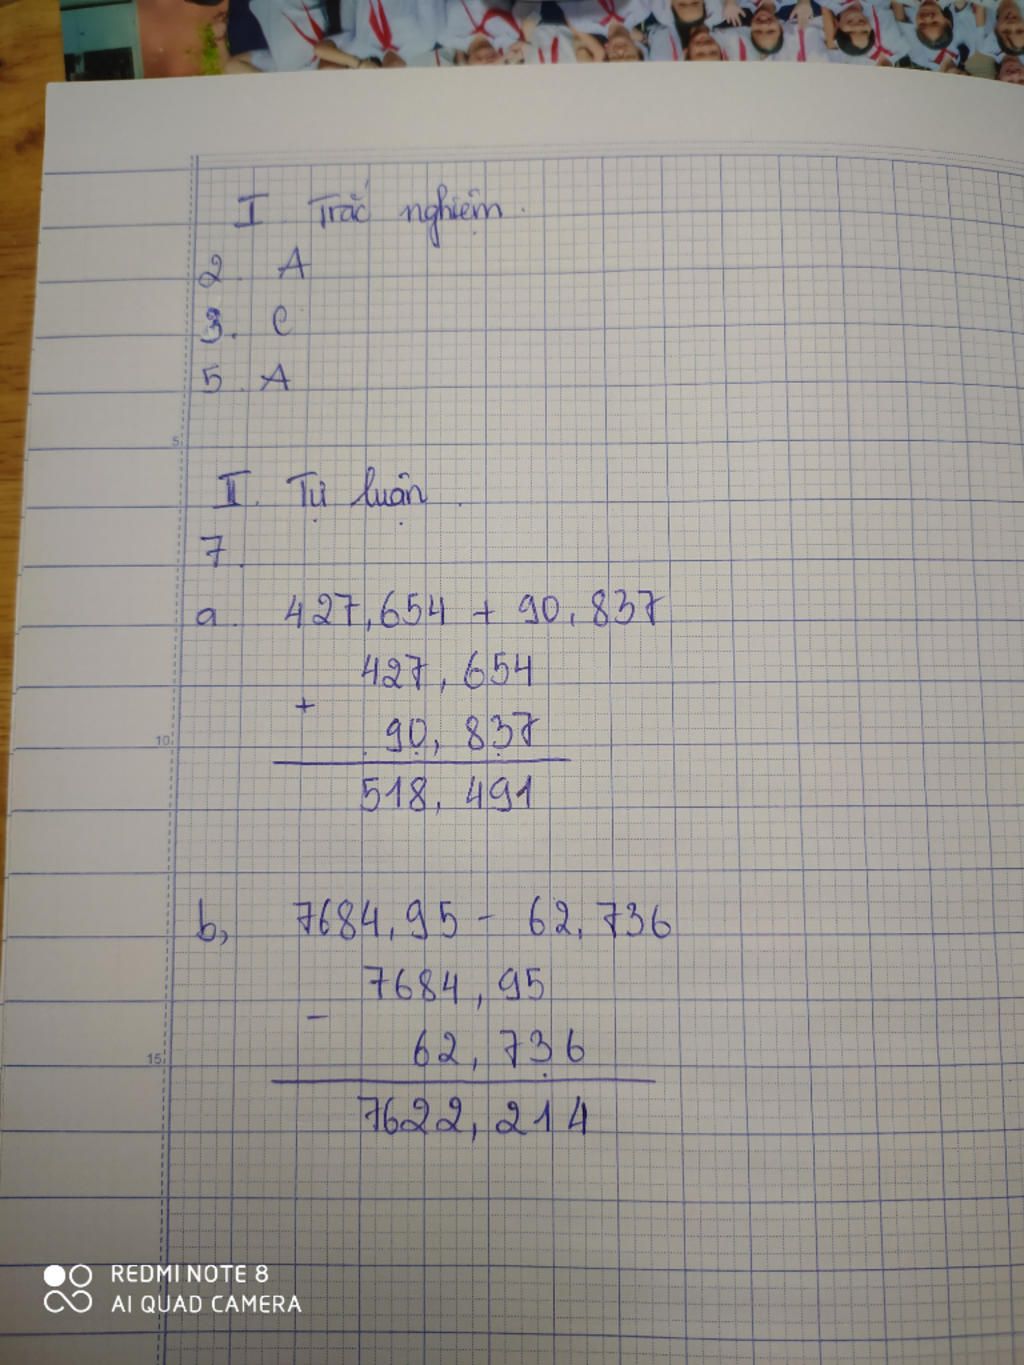 I Trắc nghiệm.
2. A
3. C
5. A
5
II. Tự luận.
7.
a. 427,654 + 90,837
427,654
+
90,837
10
518,491
b, 7684,95 - 62,736
7684,95
-
62,736
15
7622,214
REDMI NOTE 8
AI QUAD CAMERA